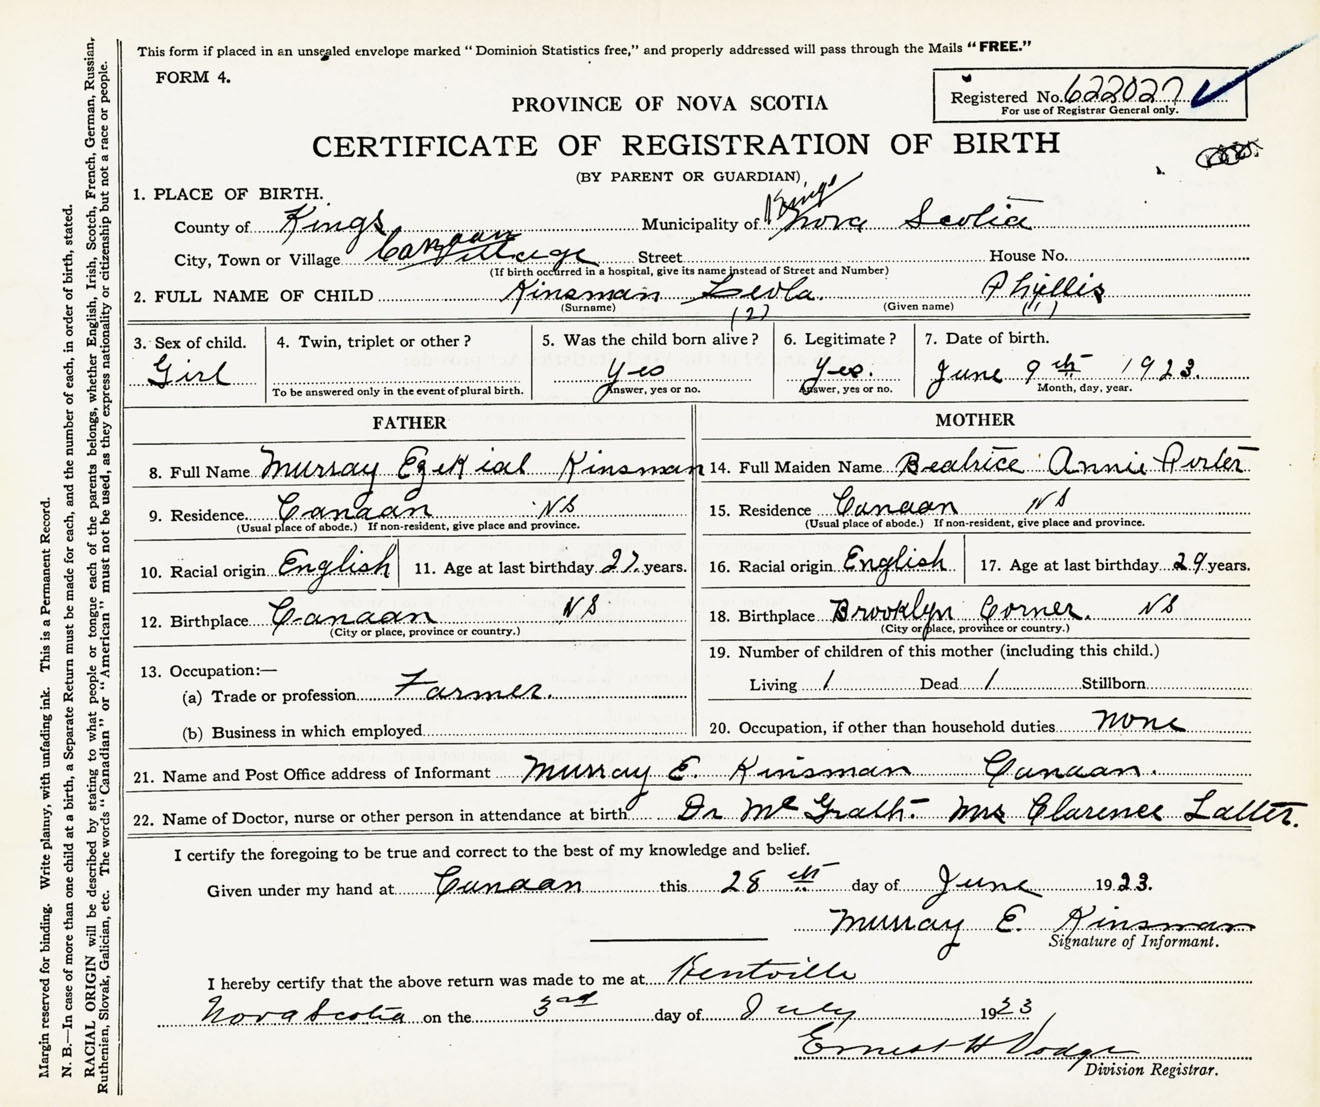 This form if placed in an unsealed envelope marked “Dominion Statistics free,” and properly addressed will pass through the Mails “FREE.”
FORM 4.
Registered No. 622027
For use of Registrar General only.
PROVINCE OF NOVA SCOTIA
CERTIFICATE OF REGISTRATION OF BIRTH
(BY PARENT OR GUARDIAN)
1. PLACE OF BIRTH.
Kings
County of Kings Municipality of Nova Scotia
Canaan
City, Town or Village Village Street House No.
(If birth occurred in a hospital, give its name instead of Street and Number)
2. FULL NAME OF CHILD Kinsman Leola. Phyllis
(Surname) (Given name)
(2) (1)
3. Sex of child. 4. Twin, triplet or other? 5. Was the child born alive? 6. Legitimate? 7. Date of birth.
Girl yes yes. June 9th 1923.
To be answered only in the event of plural birth. Answer, yes or no. Answer, yes or no. Month, day, year.
FATHER
8. Full Name Murray Ezekial Kinsman
9. Residence Canaan NS
(Usual place of abode.) If non-resident, give place and province.
10. Racial origin English 11. Age at last birthday 27. years.
12. Birthplace Canaan NS
(City or place, province or country.)
13. Occupation:—
(a) Trade or profession Farmer.
(b) Business in which employed
MOTHER
14. Full Maiden Name Beatrice Annie Porter
15. Residence Canaan NS
(Usual place of abode.) If non-resident, give place and province.
16. Racial origin English 17. Age at last birthday 29 years.
18. Birthplace Brooklyn Corner. NS
(City or place, province or country.)
19. Number of children of this mother (including this child.)
Living 1 Dead 1 Stillborn
20. Occupation, if other than household duties none
21. Name and Post Office address of Informant Murray E. Kinsman Canaan.
22. Name of Doctor, nurse or other person in attendance at birth Dr McGrath. Mrs Clarence
I certify the foregoing to be true and correct to the best of my knowledge and belief.
Given under my hand at Canaan this 28th day of June 1923.
Murray E. Kinsman
Signature of Informant.
I hereby certify that the above return was made to me at Kentville
Nova Scotia on the 3rd day of July 1923
Ernest H Dodge
Division Registrar.
Margin reserved for binding. Write plainly, with unfading ink. This is a Permanent Record.
N. B.—In case of more than one child at a birth, a Separate Return must be made for each, and the number of each, in order of birth, stated.
RACIAL ORIGIN will be described by stating to what people or tongue each of the parents belongs, whether English, Irish, Scotch, French, German, Russian,
Ruthenian, Slovak, Galician, etc. The words “Canadian” or “American” must not be used, as they express nationality or citizenship but not a race or people.